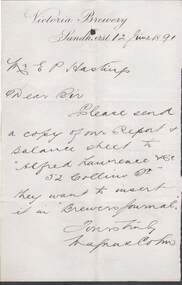 Victoria Brewery
Sandhurst 12 June 1891
Mr E P Hastings
Dear Sir
Please send
a copy of our Report &
balance sheet to
"Alfred Lawrence & Co
52 Collins St"
they want to insert
it in "Brewers Journal.
Yours truly
Magnus Cohn